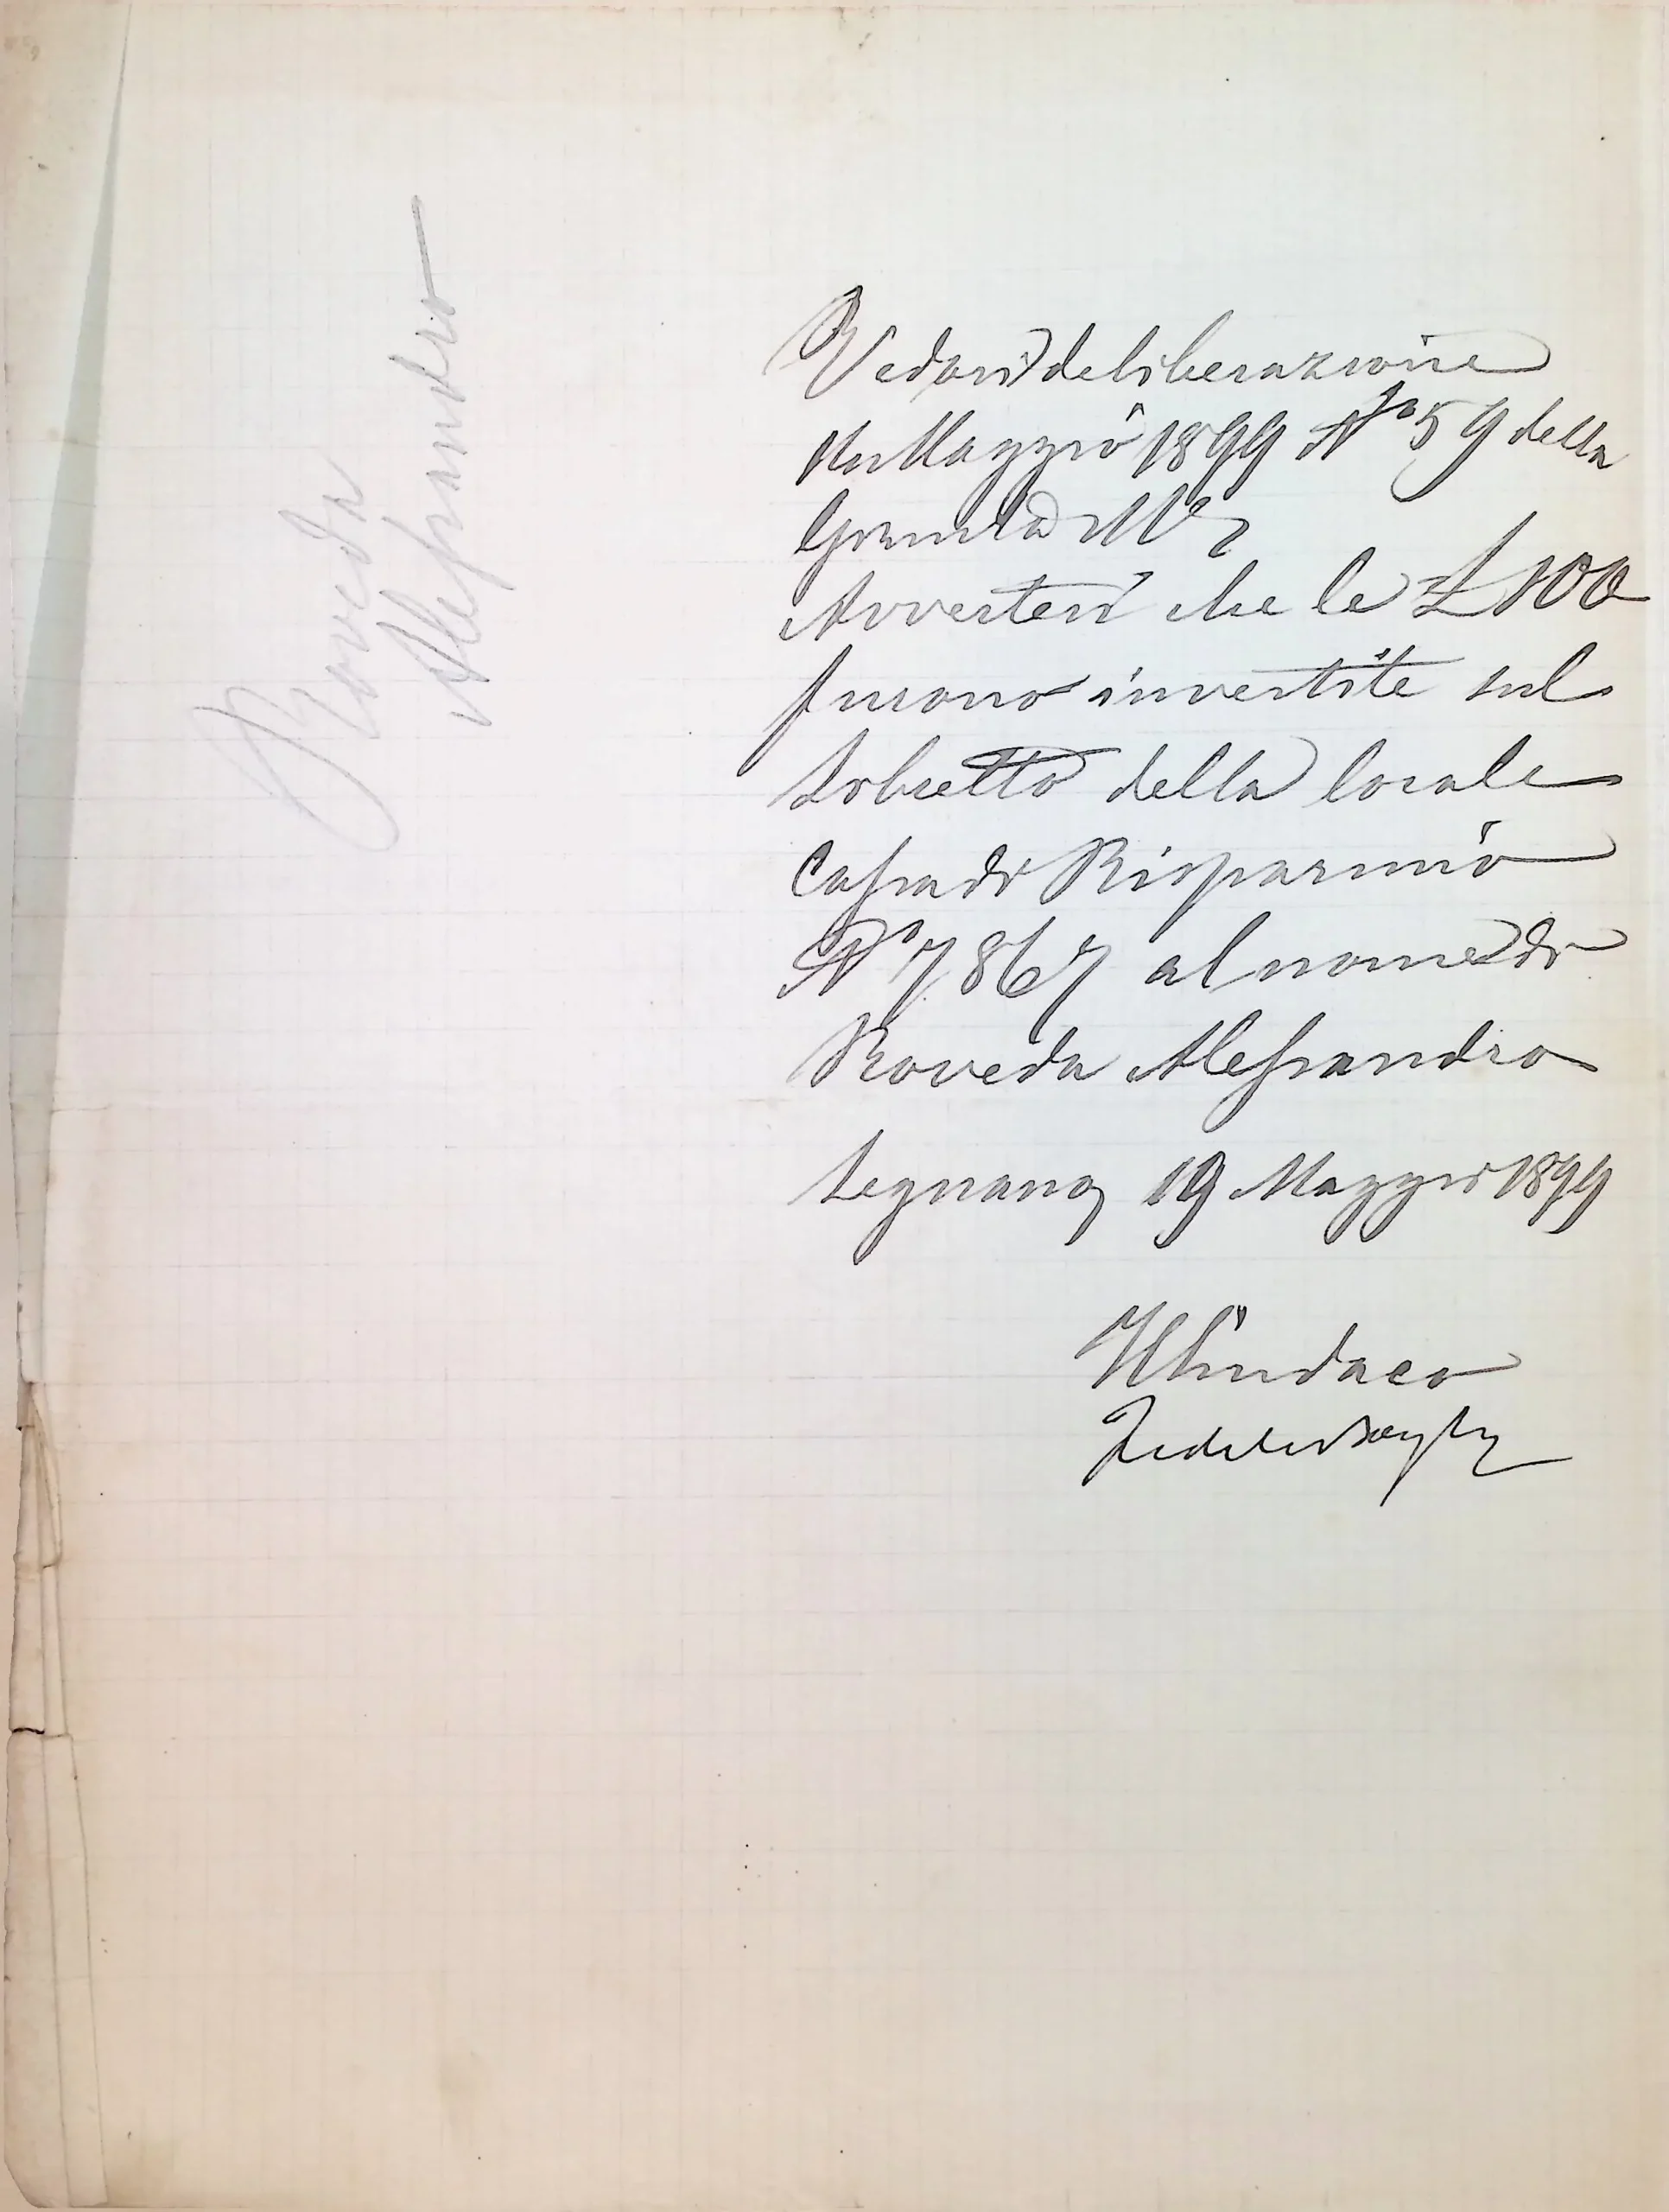 Roveda
Alessandro
Vedasi deliberazione
Maggio 1899 N° 59 della
Giunta M
Avvertesi che le £ 100
furono invertite sul
Libretto della locale
Cassa di Risparmio
N° 7867 al nome di
Roveda Alessandro
Legnano, 19 Maggio 1899
Il Sindaco